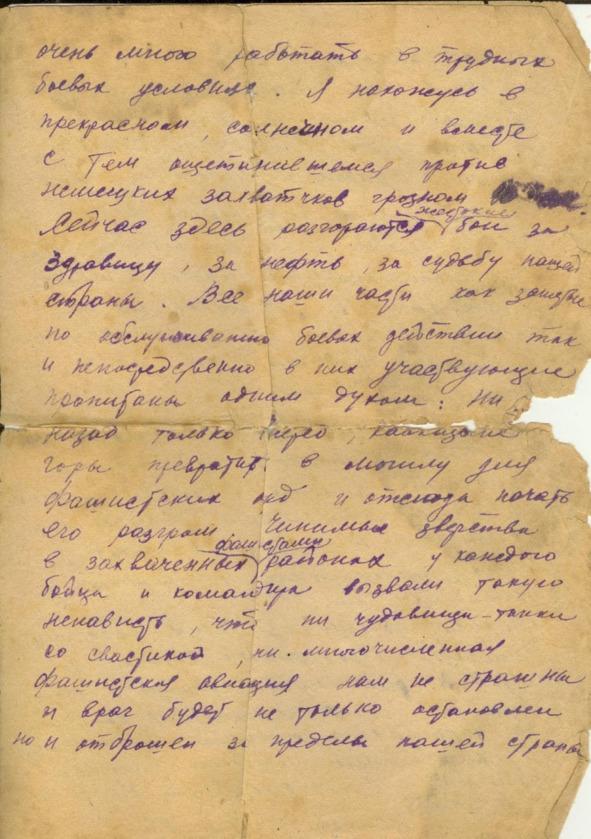 очень много работать в трудных
боевых условиях. Я нахожусь в
прекрасном, солнечном и вместе
с тем ощетинившемся против
немецких захватчиков грозном
Сейчас здесь разгораются жестокие бои за
здравницу, за нефть, за судьбу нашей
страны. Все наши части как занятые
по обслуживанию боевых действий так
и непосредственно в них участвующие
пропитаны одним духом: Ни
назад только вперед, кавказские
горы превратить в могилу для
фашистских орд и отсюда начать
его разгром. Чинимые зверства
в захваченных фашистами районах у каждого
бойца и командира вызвали такую
ненависть, что ни чудовища-танки
со свастикой, ни многочисленная
фашистская авиация нам не страшны
и враг будет не только остановлен
но и отброшен за пределы нашей страны